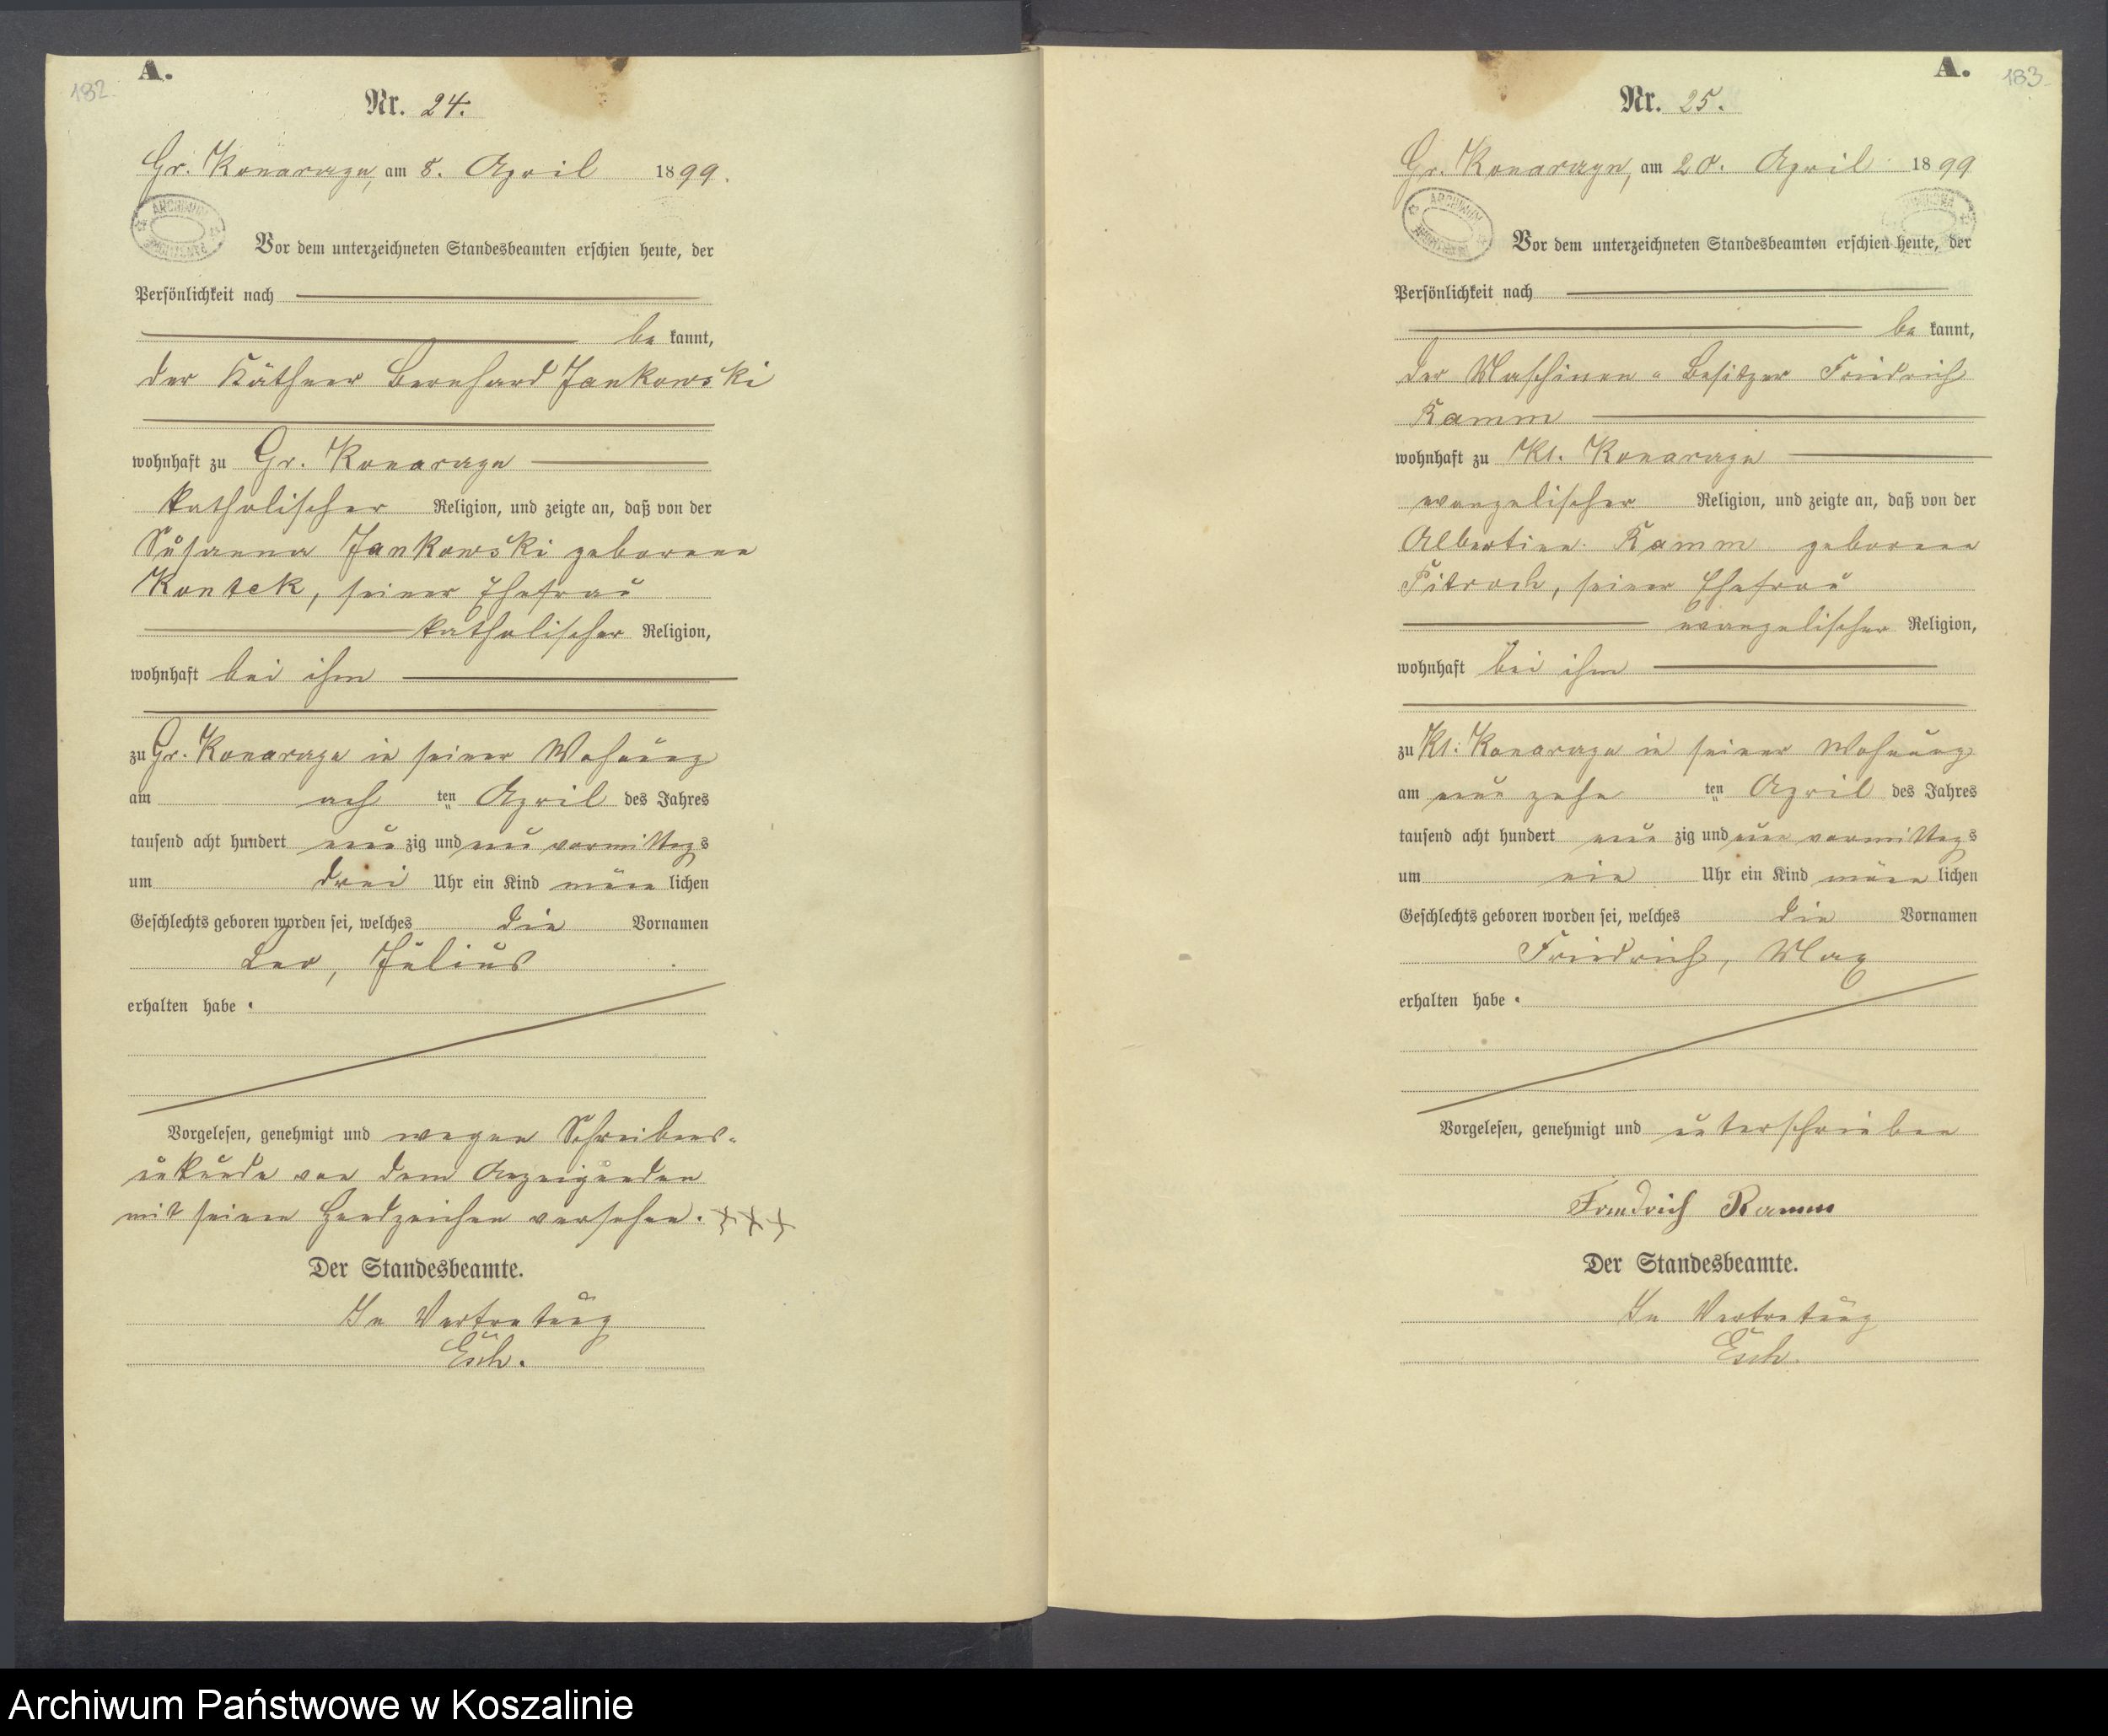 182.
A.
Nr. 24.
Gr. Konarzyn, am 8. April 1899.
ARCHIWUM
Vor dem unterzeichneten Standesbeamten erschien heute, der
Persönlichkeit nach
be kannt,
der Käthner Bernhard Jankowski
wohnhaft zu Gr. Konarzyn
katholischer Religion, und zeigte an, daß von der
Susanna Jankowski geborene
Kontek, seiner Ehefrau
katholischer Religion,
wohnhaft bei ihm
zu Gr. Konarzyn in seiner Wohnung
am ach ten April des Jahres
tausend acht hundert neun zig und neun vormittags
um drei Uhr ein Kind männ lichen
Geschlechts geboren worden sei, welches die Vornamen
Leo, Julius
erhalten habe.
Vorgelesen, genehmigt und wegen Schreibens-
unkunde von dem Anzeigenden
mit seinem Handzeichen versehen. +++
Der Standesbeamte.
In Vertretung
Esch.
A.
183
Nr. 25.
Gr. Konarzyn, am 20. April 1899
ARCHIWUM
Vor dem unterzeichneten Standesbeamten erschien heute, der
Persönlichkeit nach
be kannt,
der Maschinen-Besitzer Friedrich
Ramm
wohnhaft zu Kl. Konarzyn
evangelischer Religion, und zeigte an, daß von der
Albertine Ramm geborene
seiner Ehefrau
evangelischer Religion,
wohnhaft bei ihm
zu Kl. Konarzyn in seiner Wohnung
am neun zehn ten April des Jahres
tausend acht hundert neun zig und neun vormittags
um ein Uhr ein Kind männ lichen
Geschlechts geboren worden sei, welches die Vornamen
Friedrich, Max
erhalten habe.
Vorgelesen, genehmigt und unterschrieben
Friedrich Ramm
Der Standesbeamte.
In Vertretung
Esch.
Archiwum Państwowe w Koszalinie